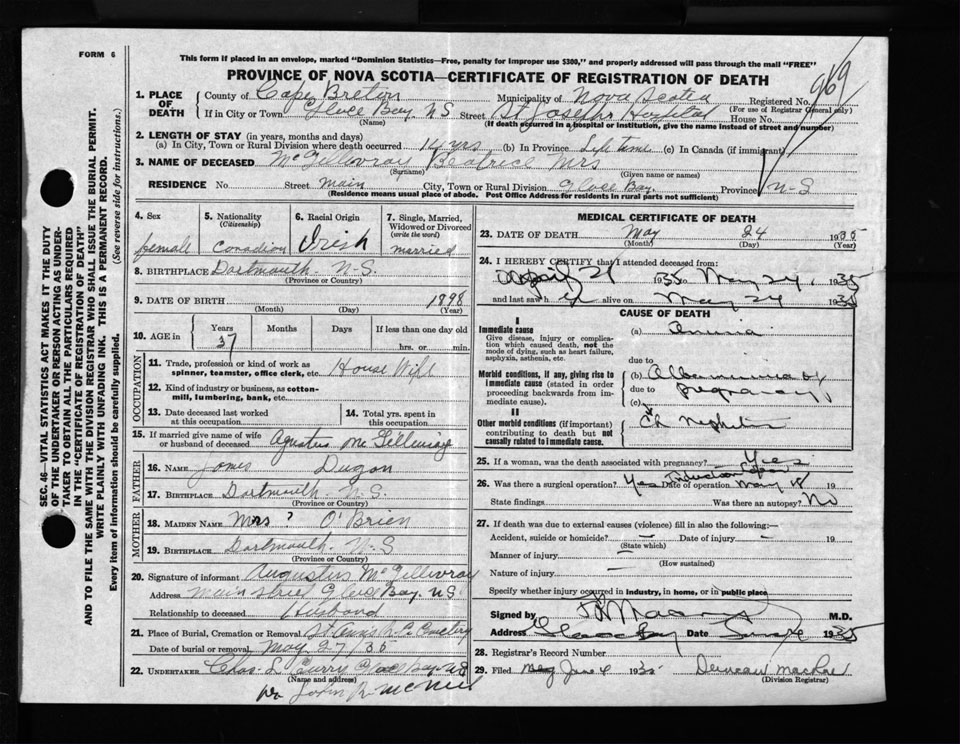 FORM 6
This form if placed in an envelope, marked "Dominion Statistics—Free, penalty for improper use $300," and properly addressed will pass through the mail "FREE"
PROVINCE OF NOVA SCOTIA—CERTIFICATE OF REGISTRATION OF DEATH
969
1. PLACE OF DEATH County of Cape Breton Municipality of Nova Scotia Registered No.
(For use of Registrar General only)
If in City or Town Glace Bay, N S Street St Josephs Hospital House No.
(Name) (If death occurred in a hospital or institution, give the name instead of street and number)
2. LENGTH OF STAY (in years, months and days)
(a) In City, Town or Rural Division where death occurred 14 yrs (b) In Province Life time (c) In Canada (if immigrant)
3. NAME OF DECEASED McGillivray Beatrice Mrs
(Surname) (Given name or names)
RESIDENCE No. Street Main City, Town or Rural Division Glace Bay Province N-S
(Residence means usual place of abode. Post Office Address for residents in rural parts not sufficient)
4. Sex female
5. Nationality (Citizenship) Canadian
6. Racial Origin Irish
7. Single, Married, Widowed or Divorced (write the word) married
8. BIRTHPLACE Dartmouth - N-S.
(Province or Country)
9. DATE OF BIRTH 1898
(Month) (Day) (Year)
10. AGE in Years 37 Months Days If less than one day old
hrs. or min.
OCCUPATION
11. Trade, profession or kind of work as spinner, teamster, office clerk, etc. House Wife
12. Kind of industry or business, as cotton-mill, lumbering, bank, etc.
13. Date deceased last worked at this occupation
14. Total yrs. spent in this occupation
15. If married give name of wife or husband of deceased
FATHER
16. NAME James Dugan
17. BIRTHPLACE Dartmouth N.S.
(Province or Country)
MOTHER
18. MAIDEN NAME Mrs ? O'Brien
19. BIRTHPLACE Dartmouth N-S
(Province or Country)
20. Signature of informant Augustus McGillivray
Address Main Street Glace Bay. N S
Relationship to deceased Husband
21. Place of Burial, Cremation or Removal St Anns R C Cemetery
Date of burial or removal May 27, 35
22. UNDERTAKER Chas. L Curry Glace Bay N S
(Name and address)
per John R McNeil
MEDICAL CERTIFICATE OF DEATH
23. DATE OF DEATH May 24 1935
(Month) (Day) (Year)
24. I HEREBY CERTIFY that I attended deceased from:
April 21 1935 to May 24, 1935
and last saw her alive on May 24 1935
CAUSE OF DEATH
I
Immediate cause
Give disease, injury or complication which caused death, not the mode of dying, such as heart failure, asphyxia, asthenia, etc.
(a)
due to
Morbid conditions, if any, giving rise to immediate cause (stated in order proceeding backwards from immediate cause).
(b) Albuminuria of
due to pregnancy
(c)
II
Other morbid conditions (if important) contributing to death but not causally related to immediate cause.
Ch Nephritis
25. If a woman, was the death associated with pregnancy? Yes
26. Was there a surgical operation? Yes Date of operation May 18 19
State findings Was there an autopsy? No
27. If death was due to external causes (violence) fill in also the following:—
Accident, suicide or homicide? — Date of injury — 19
(State which)
Manner of injury
(How sustained)
Nature of injury —
Specify whether injury occurred in industry, in home, or in public place
Signed by M.D.
Address Glace Bay Date 1935
28. Registrar's Record No.
29. Filed June 4 1935 Duncan MacRae
(Division Registrar)
SEC. 46—VITAL STATISTICS ACT MAKES IT THE DUTY
OF THE UNDERTAKER OR PERSON ACTING AS UNDER-
TAKER TO OBTAIN ALL THE PARTICULARS REQUIRED
IN THE "CERTIFICATE OF REGISTRATION OF DEATH"
AND TO FILE THE SAME WITH THE DIVISION REGISTRAR WHO SHALL ISSUE THE BURIAL PERMIT.
WRITE PLAINLY WITH UNFADING INK. THIS IS A PERMANENT RECORD.
Every item of information should be carefully supplied. (See reverse side for instructions.)